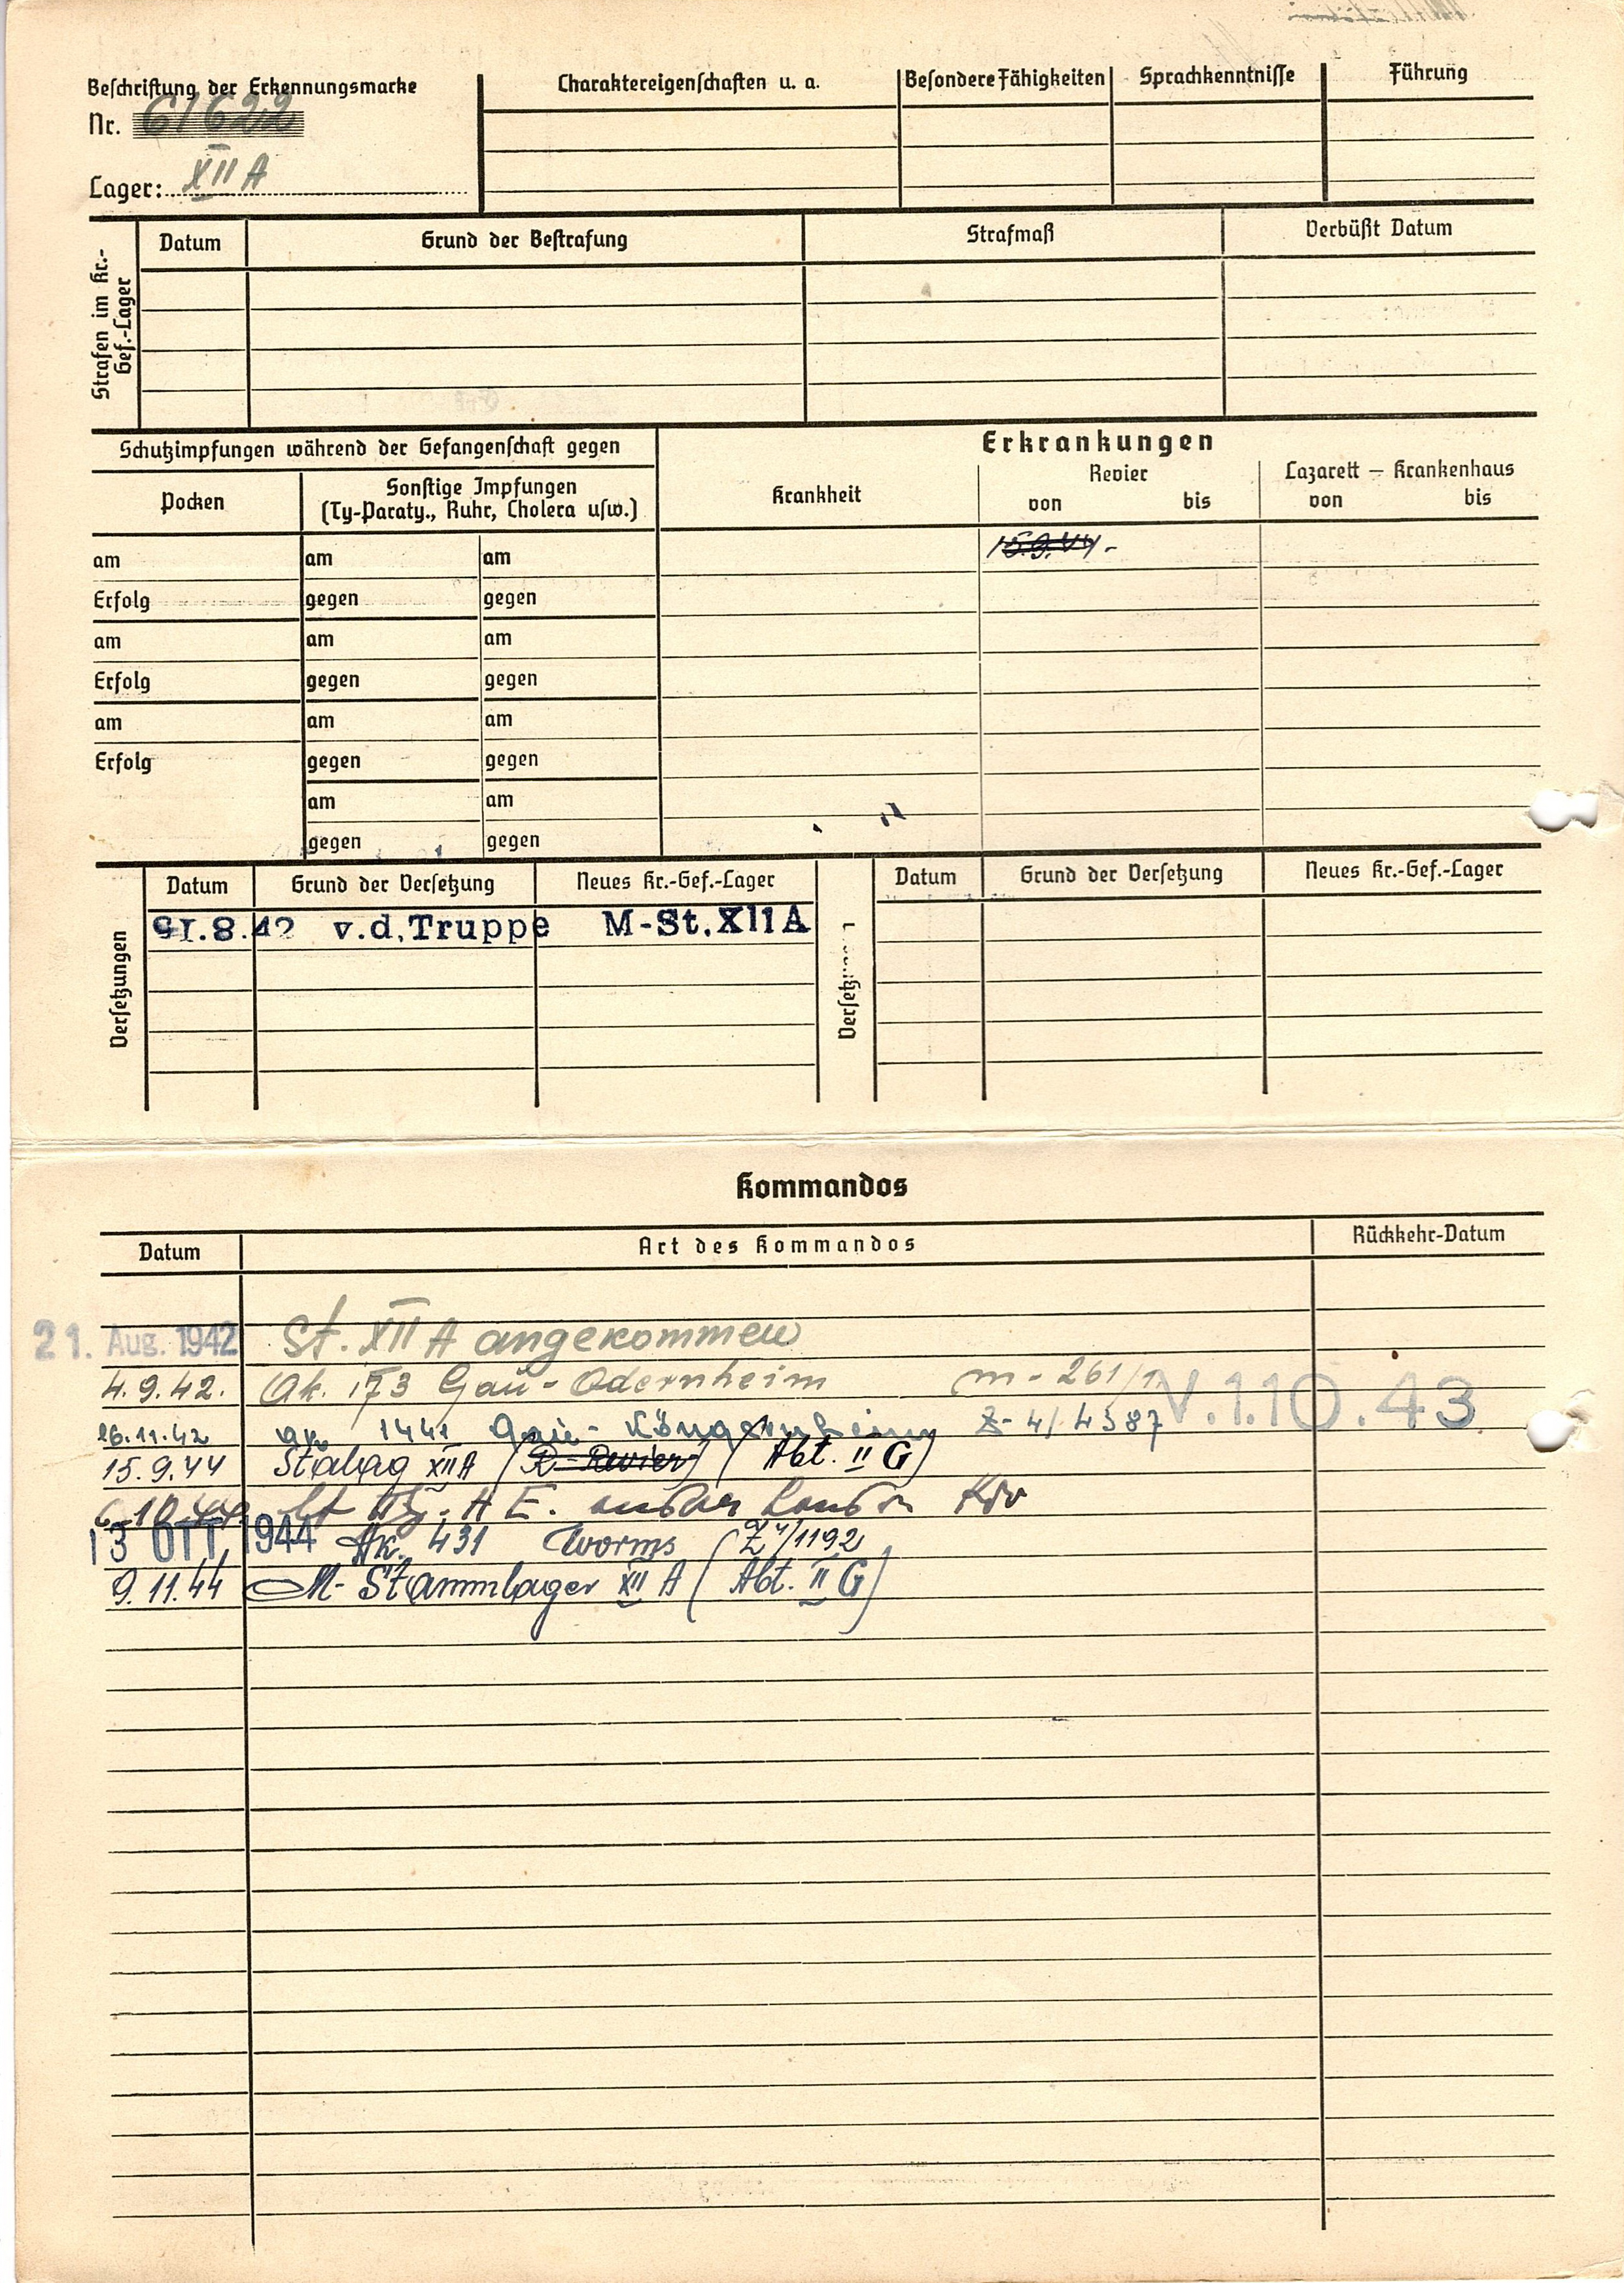 Beschriftung der Erkennungsmarke
Nr. 61622
Lager: XII A
Charaktereigenschaften u. a.
Besondere Fähigkeiten
Sprachkenntnisse
Führung
Strafen im Kr.-
Gef.-Lager
Datum
Grund der Bestrafung
Strafmaß
Verbüßt Datum
Schutzimpfungen während der Gefangenschaft gegen
Pocken
Sonstige Impfungen
(Ty-Paraty., Ruhr, Cholera usw.)
Erkrankungen
Krankheit
Revier
von bis
Lazarett – Krankenhaus
von bis
15.9.44.-
am am am
Erfolg gegen gegen
am am am
Erfolg gegen gegen
am am am
Erfolg gegen gegen
am am
gegen gegen
Versetzungen
Datum Grund der Versetzung Neues Kr.-Gef.-Lager
21.8.42 v.d.Truppe M-St.XIIA
Versetz
Datum Grund der Versetzung Neues Kr.-Gef.-Lager
Kommandos
Datum Art des Kommandos Rückkehr-Datum
21. Aug. 1942 St. XII A angekommen
4.9.42. Ak. 173 Gau-Odernheim m-261/1
V.1.10.43.
26.11.42 ak. 1441 Gau-Köngernheim Z-4/4387
15.9.44 Stalag XII A (R-Revier) (Abt. II G)
6.10.44
13 OTT. 1944 Ak. 431 Worms (Z4/1192
9.11.44 M-Stammlager XII A (Abt. II G)